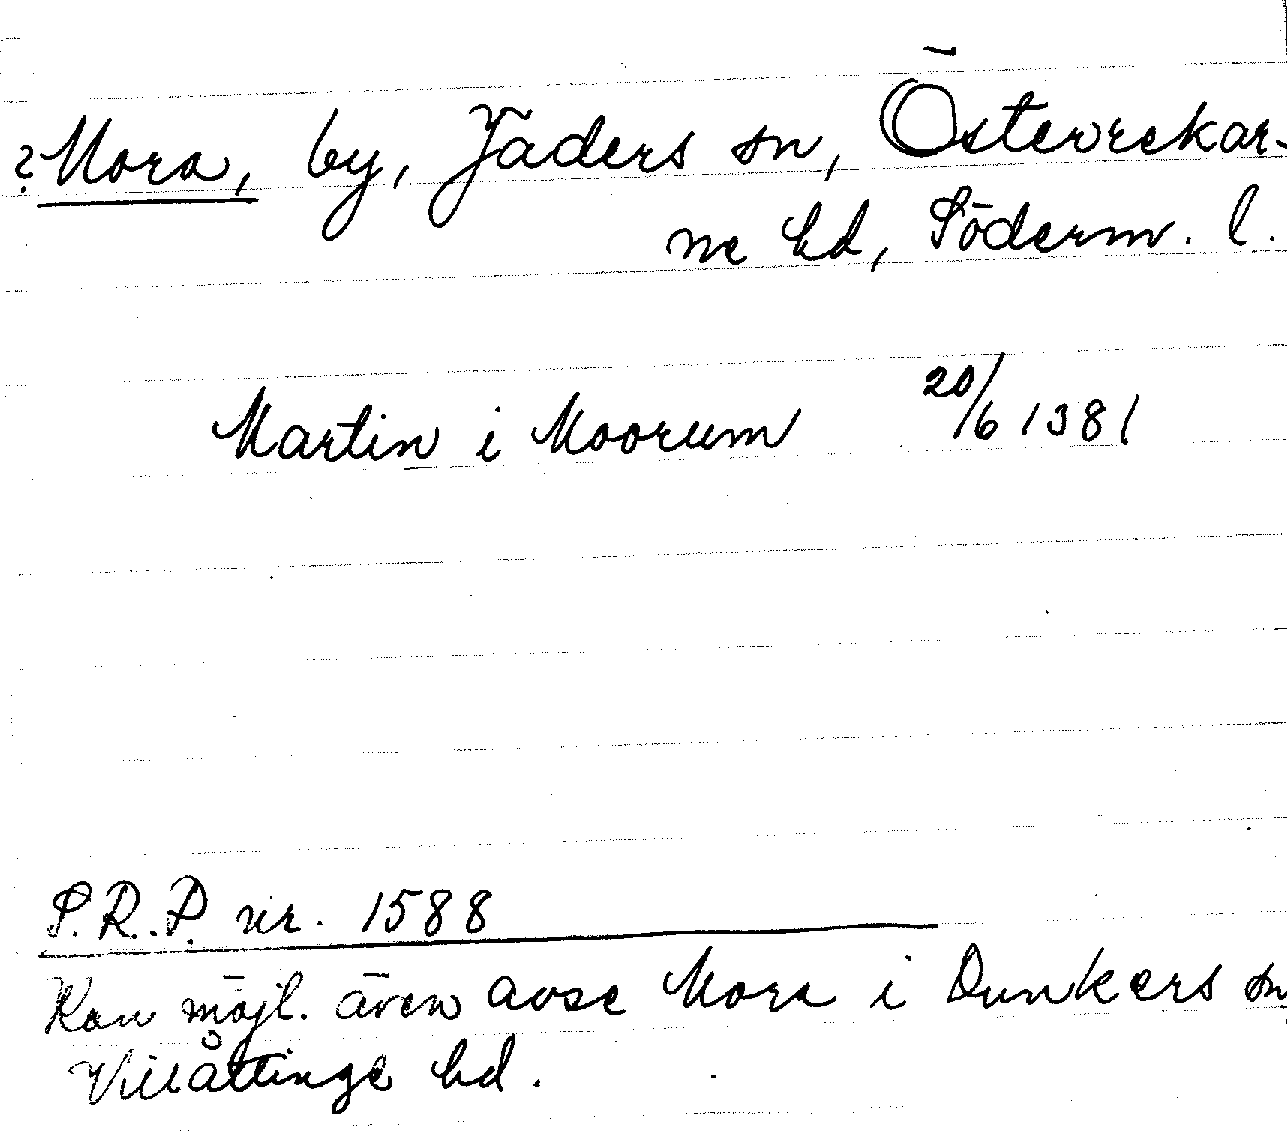 ? Mora, by, Jäders sn, Österrekar-
ne hd, Söderm. l.
Martin i Moorum 20/6 1381
S.R.P. nr. 1588
Kan möjl. även avse Mora i Dunkers sn
Villåttinge hd.